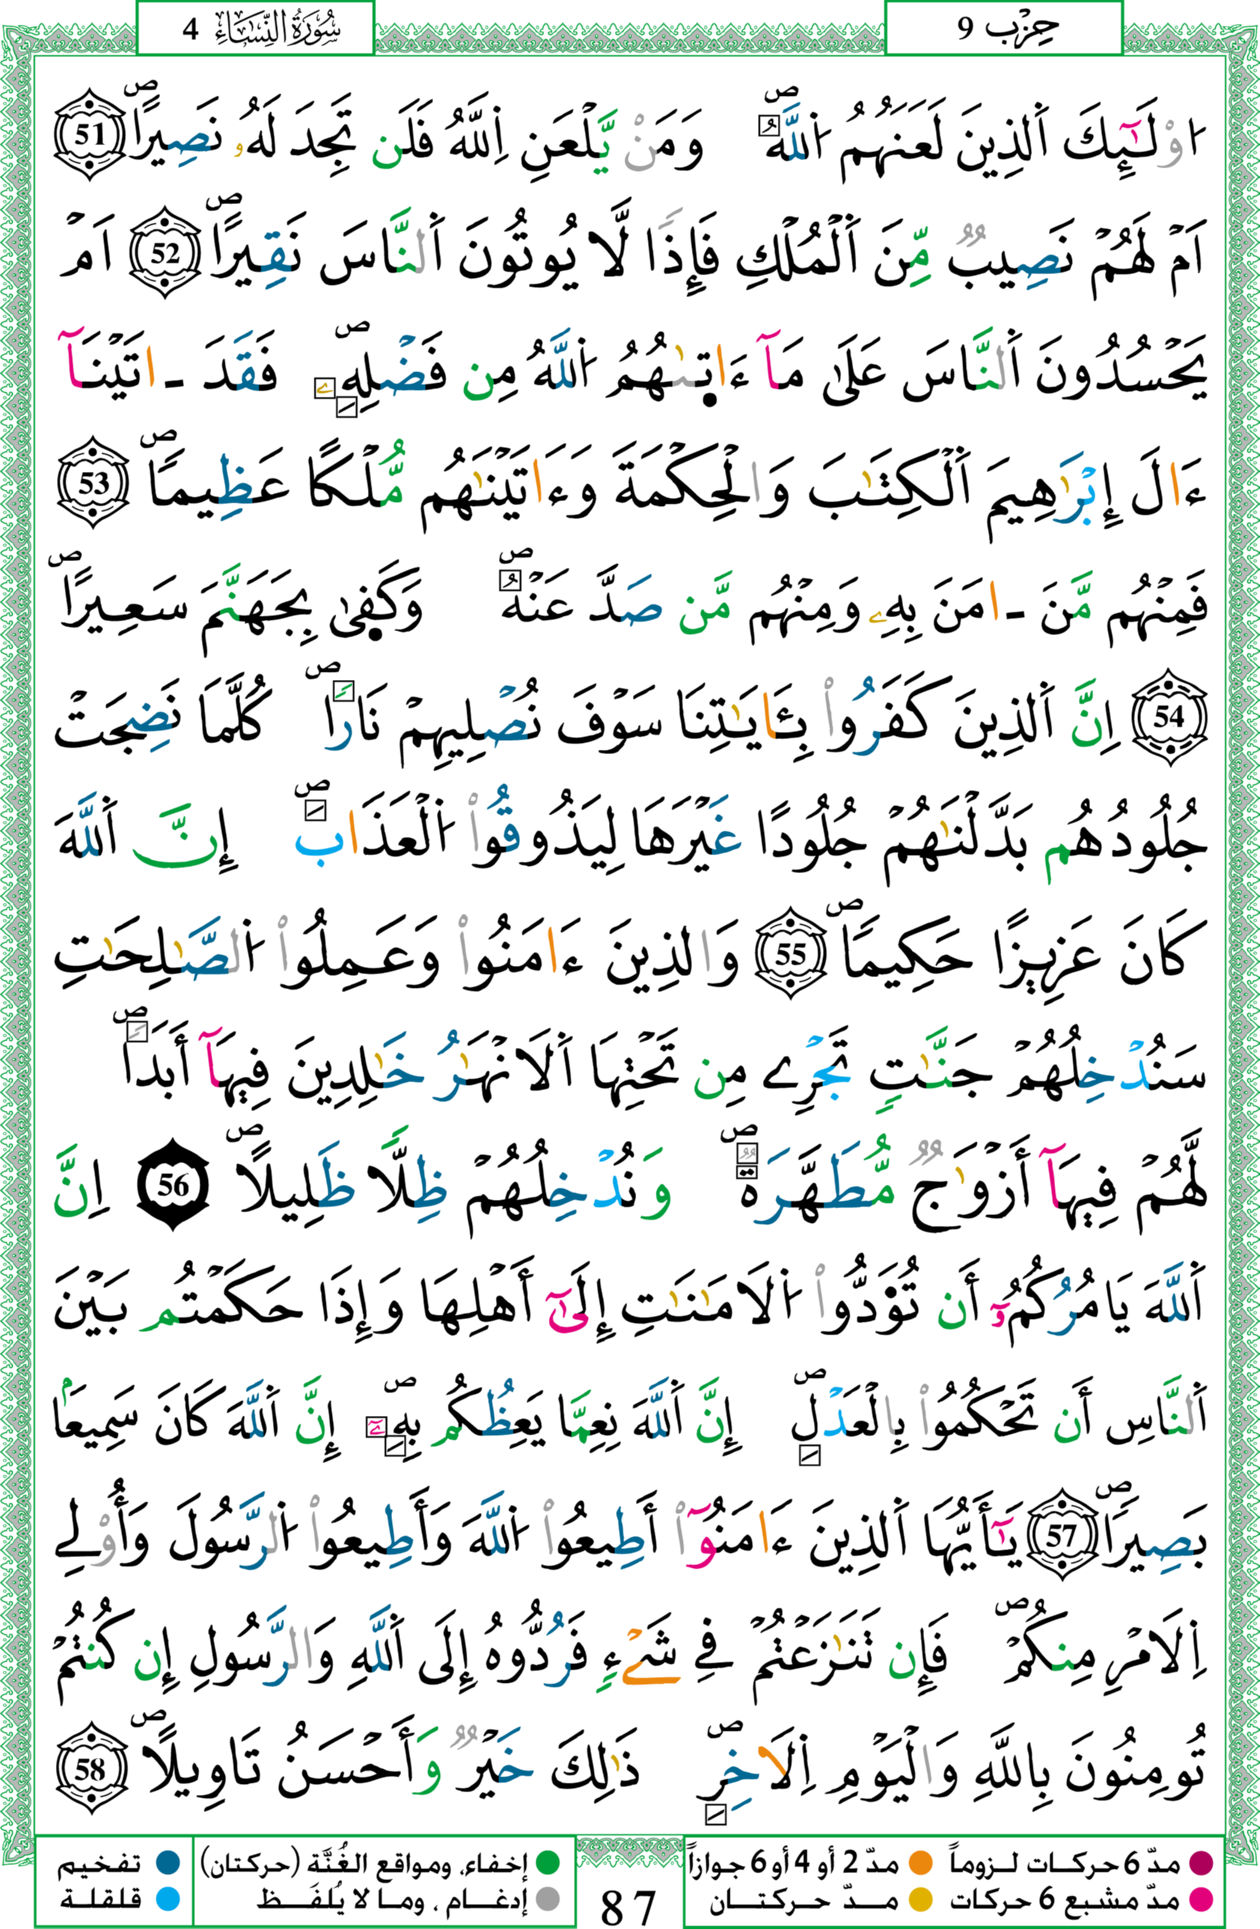 سُورَةُ النِّسَاءِ 4
حِزْب 9
اُوْلَٰٓئِكَ اَ۬لذِينَ لَعَنَهُمُ اُ۬للَّهُ ص وَمَنْ يَّلْعَنِ اِ۬للَّهُ فَلَن تَجِدَ لَهُۥ نَصِيراًۖ 51
اَمْ لَهُمْ نَصِيبٞ مِّنَ اَ۬لْمُلْكِ فَإِذاٗ لَّا يُوتُونَ اَ۬لنَّاسَ نَقِيراًۖ 52 اَمْ
يَحْسُدُونَ اَ۬لنَّاسَ عَلَىٰ مَآ ءَاتٜىٰهُمُ اُ۬للَّهُ مِن فَضْلِهِۦۖ فَقَدَ ـ اتَيْنَآ
ءَالَ إِبْرَٰهِيمَ اَ۬لْكِتَٰبَ وَالْحِكْمَةَ وَءَاتَيْنَٰهُم مُّلْكاً عَظِيماًۖ 53
فَمِنْهُم مَّنَ ـ امَنَ بِهِۦ وَمِنْهُم مَّن صَدَّ عَنْهُۖ وَكَفٜىٰ بِجَهَنَّمَ سَعِيراًۖ
54 اِنَّ اَ۬لذِينَ كَفَرُواْ بِـَٔايَٰتِنَا سَوْفَ نُصْلِيهِمْ نَاراٗۖ كُلَّمَا نَضِجَتْ
جُلُودُهُم بَدَّلْنَٰهُمْ جُلُوداً غَيْرَهَا لِيَذُوقُواْ اُ۬لْعَذَابَۖ إِنَّ اَ۬للَّهَ
كَانَ عَزِيزاً حَكِيماًۖ 55 وَالذِينَ ءَامَنُواْ وَعَمِلُواْ اُ۬لصَّٰلِحَٰتِ
سَنُدْخِلُهُمْ جَنَّٰتٖ تَجْرِے مِن تَحْتِهَا اَ۬لَانْهَٰرُ خَٰلِدِينَ فِيهَآ أَبَداٗۖ
لَّهُمْ فِيهَآ أَزْوَٰجٞ مُّطَهَّرَةٞۖ وَنُدْخِلُهُمْ ظِلّاٗ ظَلِيلاًۖ 56 اِنَّ
اَ۬للَّهَ يَامُرُكُمُۥٓ أَن تُؤَدُّواْ اُ۬لَامَٰنَٰتِ إِلَىٰٓ أَهْلِهَا وَإِذَا حَكَمْتُم بَيْنَ
اَ۬لنَّاسِ أَن تَحْكُمُواْ بِالْعَدْلِۖ إِنَّ اَ۬للَّهَ نِعِمَّا يَعِظُكُم بِهِۦٓۖ إِنَّ اَ۬للَّهَ كَانَ سَمِيعاَۢ
بَصِيراًۖ 57 يَٰٓأَيُّهَا اَ۬لذِينَ ءَامَنُوٓاْ أَطِيعُواْ اُ۬للَّهَ وَأَطِيعُواْ اُ۬لرَّسُولَ وَأُوْلِے
اِ۬لَامْرِ مِنكُمْۖ فَإِن تَنَٰزَعْتُمْ فِے شَےْءٖ فَرُدُّوهُ إِلَى اَ۬للَّهِ وَالرَّسُولِ إِن كُنتُمْ
تُومِنُونَ بِاللَّهِ وَالْيَوْمِ اِ۬لَاخِرِۖ ذَٰلِكَ خَيْرٞ وَأَحْسَنُ تَاوِيلاًۖ 58
مدّ 6 حركات لـزوماً مدّ 2 أو 4 أو 6 جوازاً
مدّ مشبع 6 حركات مـدّ حـركتـان
إخفاء، ومواقع الغُنَّة (حركتان) تفخيم
إدغـام ، ومـا لا يُلفَـظ قلقلة
87